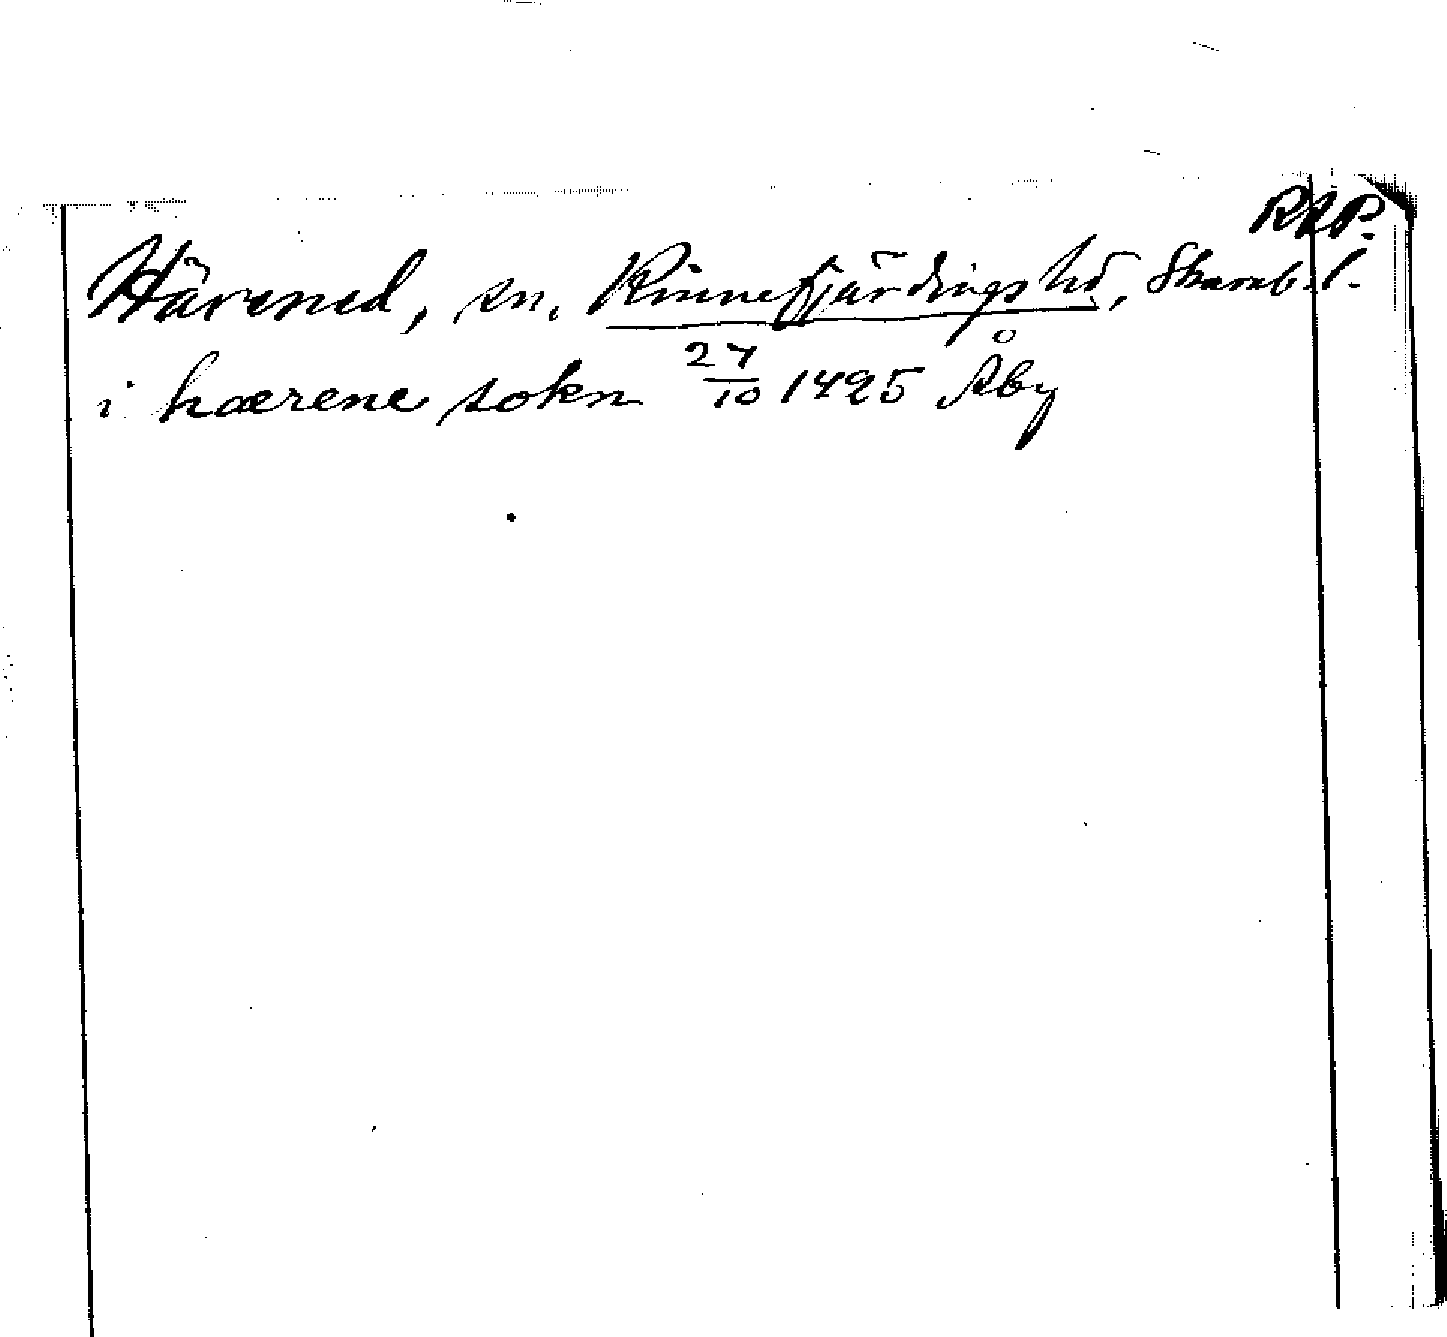 RAP.
Härened, sn. Kinnefjärdings hd, Skarab. l.
i hærene sokn 27/10 1425 Åby